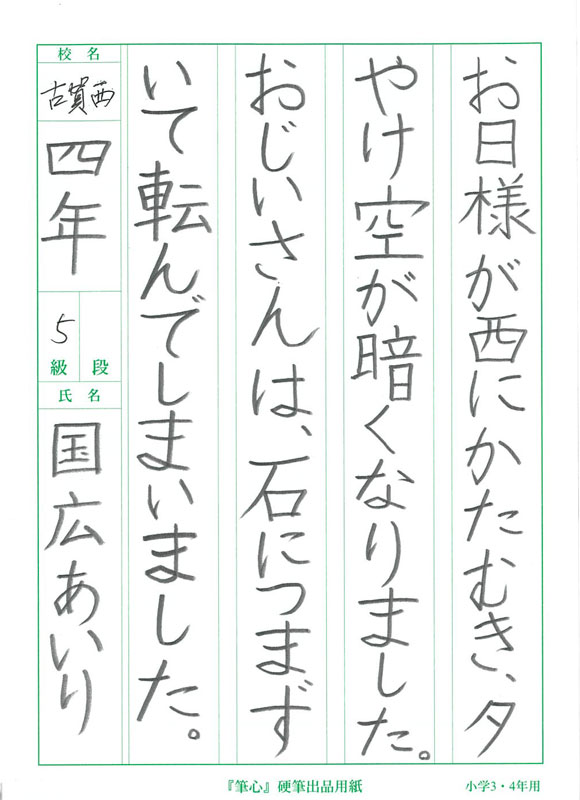 お日様が西にかたむき、夕
やけ空が暗くなりました。
おじいさんは、石につまず
いて転んでしまいました。
校名
古賀西
四年
5
級 段
氏名
国広あいり
『筆心』硬筆出品用紙
小学3・4年用